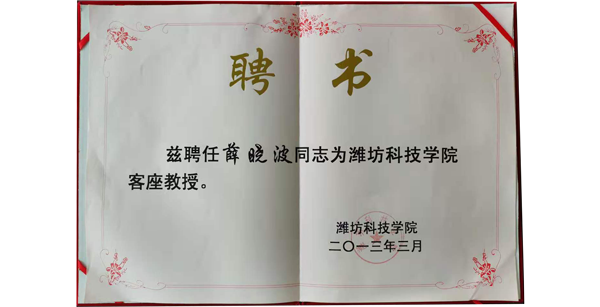 聘 书
兹聘任薛晓波同志为潍坊科技学院
客座教授。
潍坊科技学院
二〇一三年三月